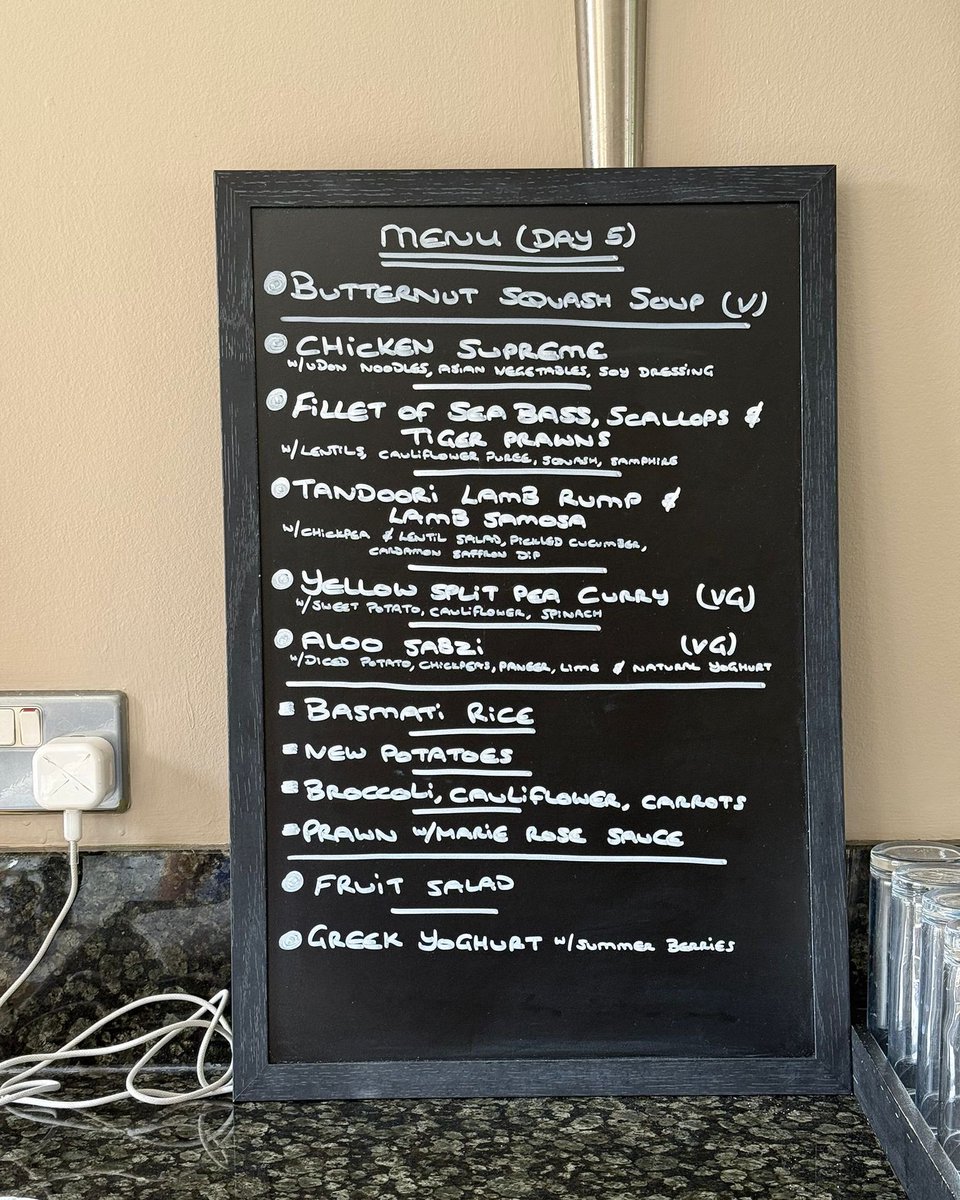 MENU (DAY 5)
BUTTERNUT SQUASH SOUP (V)
CHICKEN SUPREME
W/UDON NOODLES, ASIAN VEGETABLES, SOY DRESSING
FILLET OF SEA BASS, SCALLOPS &
TIGER PRAWNS
W/LENTILS, CAULIFLOWER PUREE, SQUASH, SAMPHIRE
TANDOORI LAMB RUMP &
LAMB SAMOSA
W/CHICKPEA & LENTIL SALAD, PICKLED CUCUMBER,
CARDAMON SAFFRON DIP
YELLOW SPLIT PEA CURRY (VG)
W/SWEET POTATO, CAULIFLOWER, SPINACH
ALOO SABZI (VG)
W/DICED POTATO, CHICKPEAS, PANEER, LIME & NATURAL YOGHURT
BASMATI RICE
NEW POTATOES
BROCCOLI, CAULIFLOWER, CARROTS
PRAWN W/MARIE ROSE SAUCE
FRUIT SALAD
GREEK YOGHURT W/SUMMER BERRIES